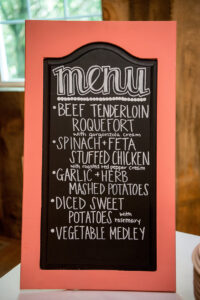 menu
• BEEF TENDERLOIN
ROQUEFORT
with gorgonzola cream
• SPINACH + FETA
STUFFED CHICKEN
with roasted red pepper cream
• GARLIC + HERB
MASHED POTATOES
• DICED SWEET
POTATOES with rosemary
• VEGETABLE MEDLEY